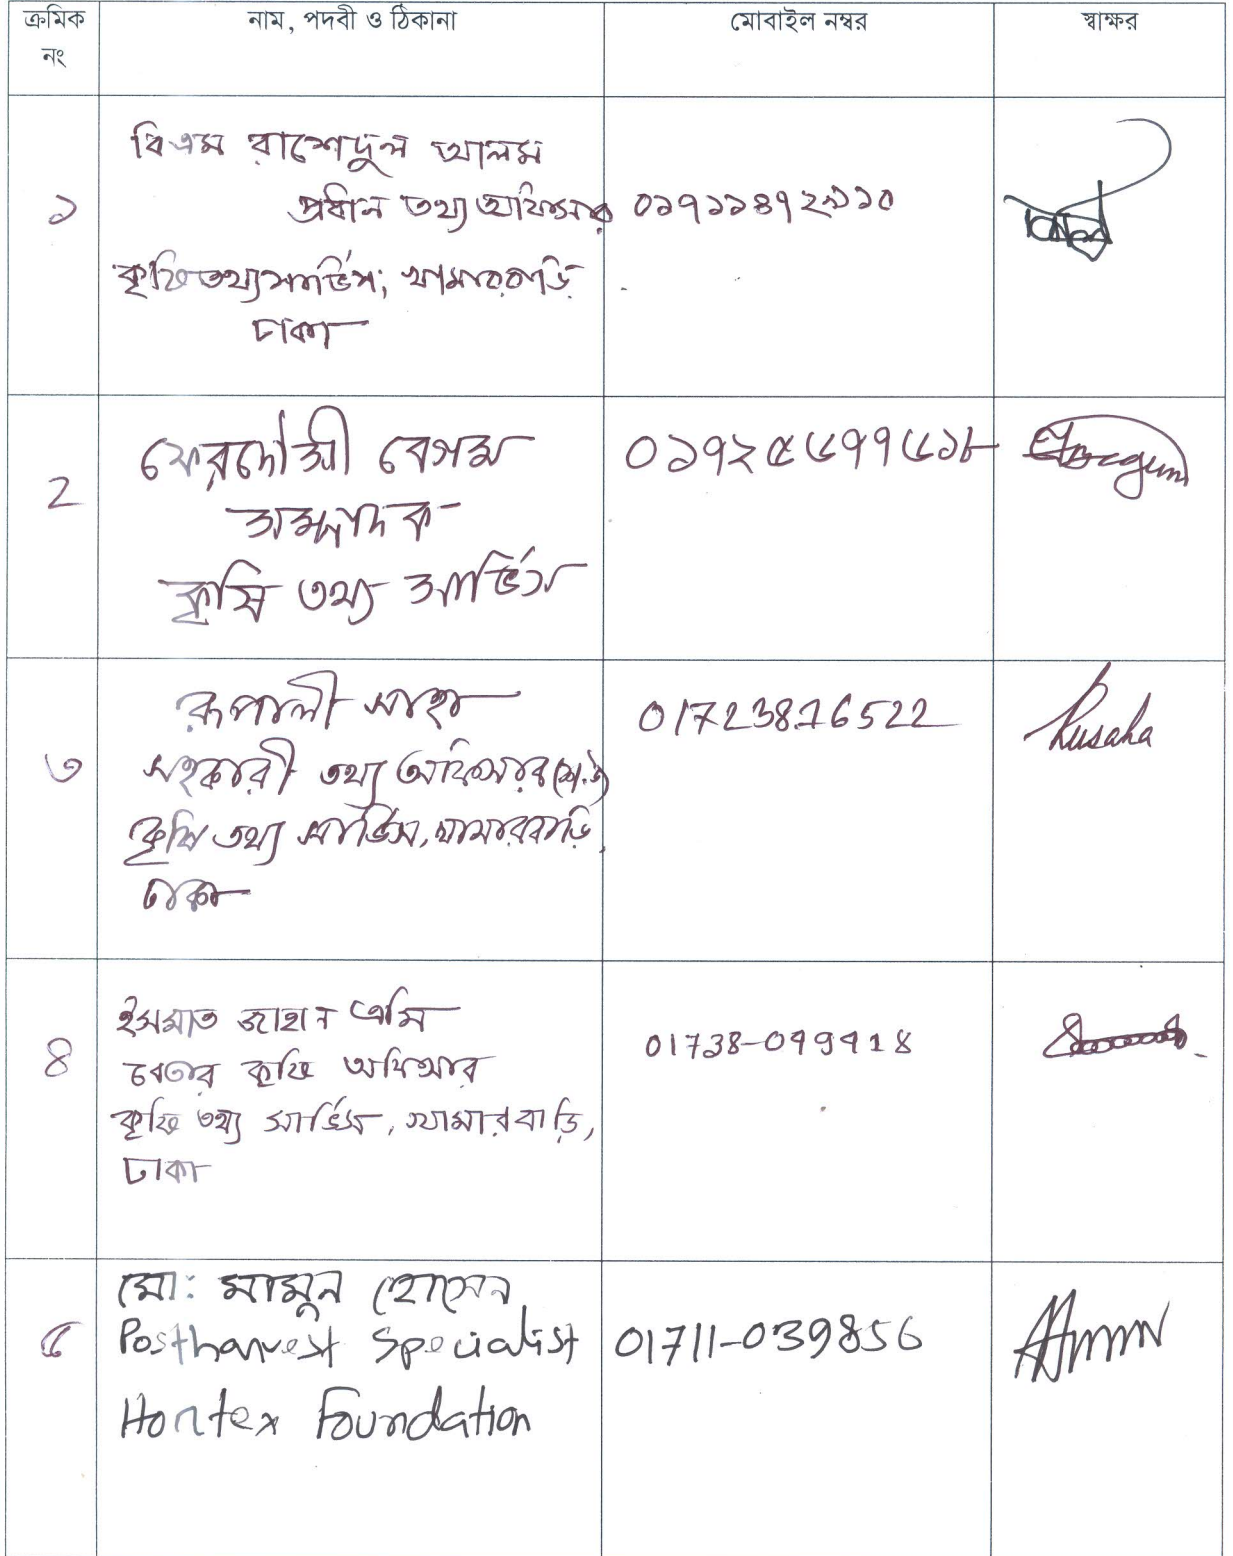 ক্রমিক নং
নাম, পদবী ও ঠিকানা
মোবাইল নম্বর
স্বাক্ষর
১
বিএম রাশেদুল আলম
প্রধান তথ্য অফিসার
কৃষি তথ্য সার্ভিস, খামারবাড়ি
ঢাকা
০১৭১১৪৭২৯১০
2
ফেরদৌসী বেগম
সম্পাদক
কৃষি তথ্য সার্ভিস
০১৭২৫৬৭৭৬১৮
৩
রূপালী সাহা
সহকারী তথ্য অফিসার
কৃষি তথ্য সার্ভিস, খামারবাড়ি,
ঢাকা
01723816522
Rusaha
৪
ইসমাত জাহান এমি
বেতার কৃষি অফিসার
কৃষি তথ্য সার্ভিস, খামারবাড়ি,
ঢাকা
৫
মো: মামুন হোসেন
Postharvest Specialist
Hortex Foundation
01711-039856